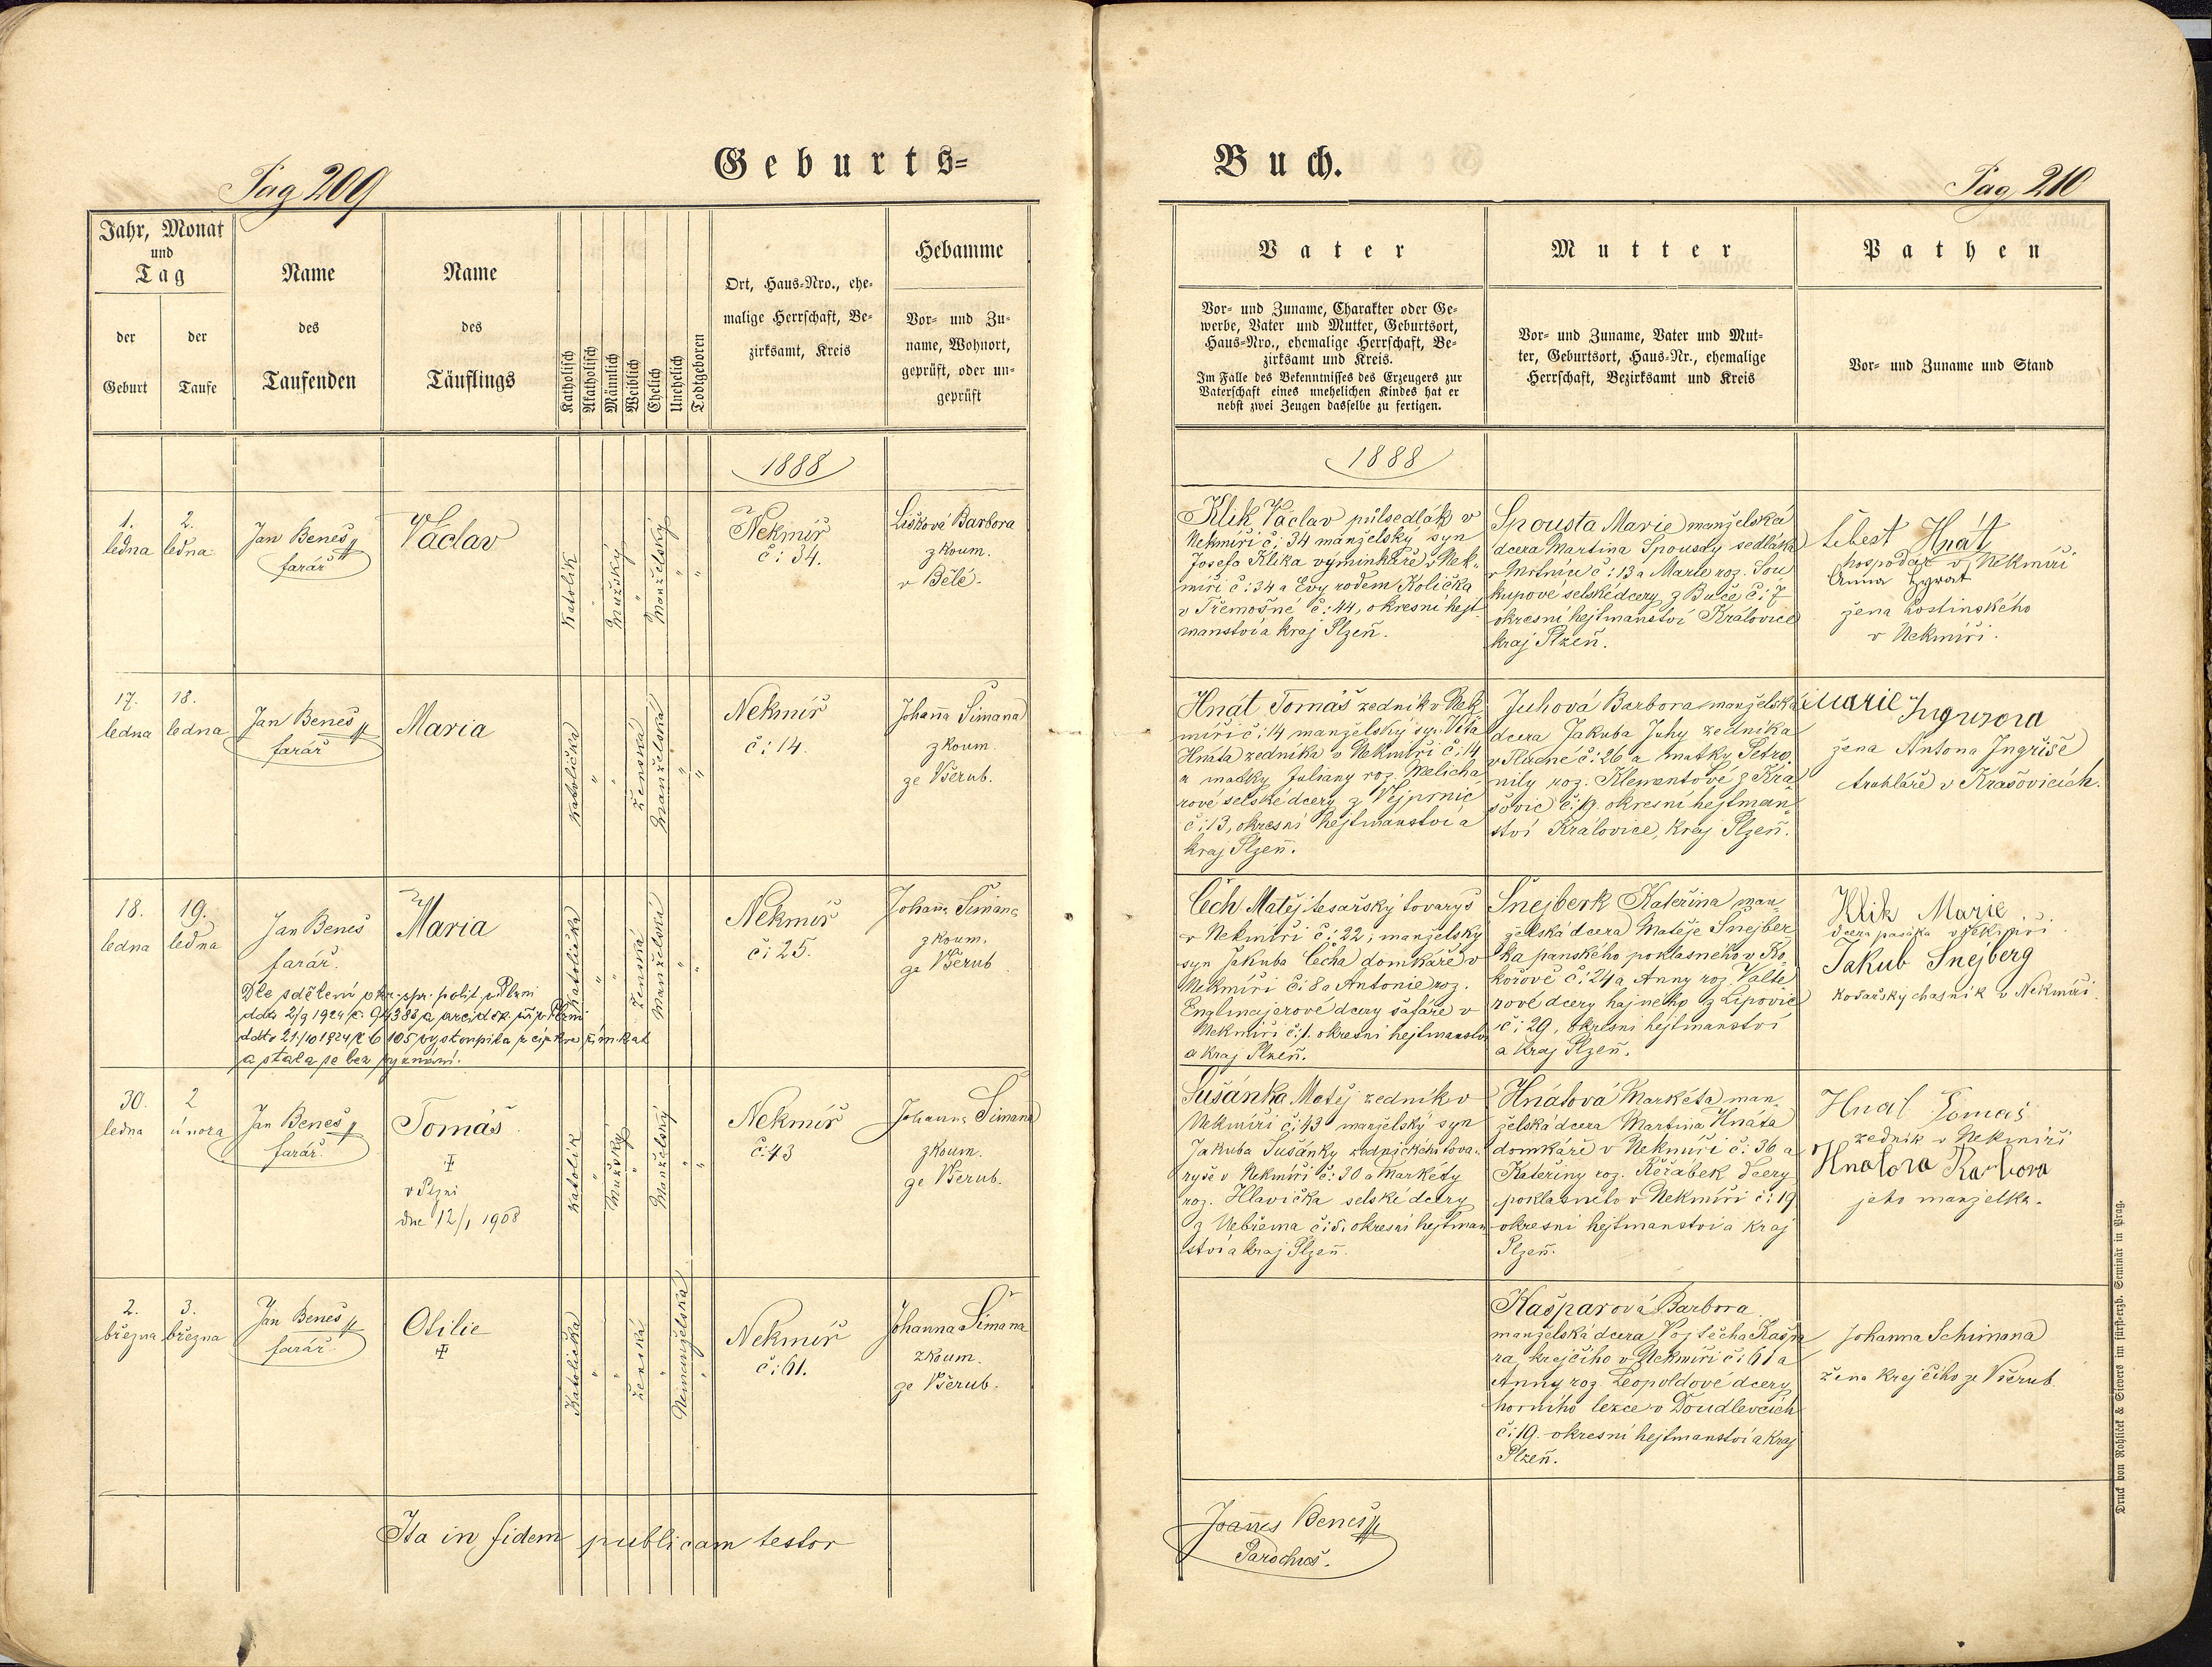 Geburts=
Buch.
Pag 209
Pag 210
Jahr, Monat
und
Tag
der
Geburt
der
Taufe
Name
des
Taufenden
Name
des
Täuflings
Katholisch
Akatholisch
Männlich
Weiblich
Ehelich
Unehelich
Todtgeboren
Ort, Haus-Nro., ehe-
malige Herrschaft, Be-
zirksamt, Kreis
Hebamme
Vor- und Zu-
name, Wohnort,
geprüft, oder un-
geprüft
Vater
Vor- und Zuname, Charakter oder Ge-
werbe, Vater und Mutter, Geburtsort,
Haus-Nro., ehemalige Herrschaft, Be-
zirksamt und Kreis.
Im Falle des Bekenntnisses des Erzeugers zur
Vaterschaft eines unehelichen Kindes hat er
nebst zwei Zeugen dasselbe zu fertigen.
Mutter
Vor- und Zuname, Vater und Mut-
ter, Geburtsort, Haus-Nr., ehemalige
Herrschaft, Bezirksamt und Kreis
Pathen
Vor- und Zuname und Stand
1888
1888
1.
ledna
2.
ledna
Jan Beneš
farář
Václav
Katolík
"
Mužský
"
Manželský
"
"
Nekmíř
č: 34.
Lišková Barbora
zkoum.
v Bělé.
Klik Václav půlsedlák v
Nekmíři č: 34 manželský syn
Josefa Klika výminkáře v Nek-
míři č: 34 a Evy rodem Količka
v Třemošné č: 44, okresní hejt
manství a kraj Plzeň.
Spousta Marie manželská
dcera Martina Spousty sedláka
v Mrtníce č: 13 a Marie roz. Sou
kupové selské dcery z Buče č: 7
okresní hejtmanství Kralovice
kraj Plzeň.
Šebest Hnát
hospodář v Nekmíři
Anna
žena hostinského
v Nekmíři.
17.
ledna
18.
ledna
Jan Beneš
farář
Maria
Katolička
"
"
Ženská
Manželská
"
"
Nekmíř
č: 14.
Johanna Šimana
zkoum.
ze Všerub.
Hnát Tomáš zedník v Nek
míři č: 14 manželský syn Víta
Hnáta zedníka v Nekmíři č: 14
a matky Juliany roz. Melicha
rové selské dcery z Vejprnic
č: 13, okresní hejtmanství a
kraj Plzeň.
Juhová Barbora manželská
dcera Jakuba Juhy zedníka
v Tlucné č: 26 a matky Petro
nily roz. Klementové z Kra
šovic č: 9. okresní hejtman
ství Kralovice, kraj Plzeň.
Marie
žena Antona Ingriše
truhláře v Krašovicích.
18.
ledna
19.
ledna
Jan Beneš
farář.
Maria
Katolička
"
"
Ženská
Manželská
"
"
Nekmíř
č: 25.
Johanna Šimana
zkoum.
ze Všerub
Dle sdělení okr. spr. polit. v Plzni
ddto 2/9 1924 č: 94388 a arciděk. v Plzni
ddto 21/10 1924 č 6105 vystoupila z církve řím. kat
a stala se bez vyznání.
Čech Matěj tesařský tovaryš
v Nekmíři č: 22; manželský
syn Jakuba Čecha domkáře v
Nekmíři č: 8 a Antonie roz.
Englmajerové dcery šafáře v
Nekmíři č: 1. okresní hejtmanství
a kraj Plzeň.
Šnejberk Kateřina man
želská dcera Matěje Šnejber
ka panského poklasného v Ko
košově č: 24 a Anny roz. Valte
rové dcery hajného z Lipovic
č: 29, okresní hejtmanství
a kraj Plzeň.
Klik Marie
dcera pasáka v Nekmíři
Jakub Šnejberg
kovářský chasník v Nekmíři.
30.
ledna
2
února
Jan Beneš
farář.
Tomáš
v Plzni
dne 12/1 1908
Katolík
"
Mužský
"
Manželský
"
"
Nekmíř
č: 43
Johanna Šimana
zkoum.
ze Všerub.
Sušánka Matěj zedník v
Nekmíři č: 43 manželský syn
Jakuba Sušánky zednického tova-
ryše v Nekmíři č: 30 a Markéty
roz. Hlavička selské dcery
z Nebřema č: 5. okresní hejtman
ství a kraj Plzeň.
Hnátová Markéta man
želská dcera Martina Hnáta
domkáře v Nekmíři č: 36 a
Kateřiny roz. Řeřábek dcery
poklasného v Nekmíři č: 19
okresní hejtmanství a kraj
Plzeň.
Hnat Tomaš
zedník v Nekmíři
Hnatova Barbora
jeho manželka.
2.
března
3.
března
Jan Beneš
farář
Otilie
Katolička
"
"
Ženská
"
Nemanželská
"
Nekmíř
č: 61.
Johanna Šimana
zkoum.
ze Všerub.
Kašparová Barbora
manželská dcera Vojtěcha Kašpa
ra, krejčího v Nekmíři č: 61 a
Anny roz. Leopoldové dcery
horního lezce v Doudlevcích
č: 19. okresní hejtmanství a kraj
Plzeň.
Johanna Schimana
žena krejčího ze Všerub
Ita in fidem publicam testor
Joannes Beneš
Parochus.
Druck von Rohliček & Sievers im fürst-erzb. Seminär in Prag.